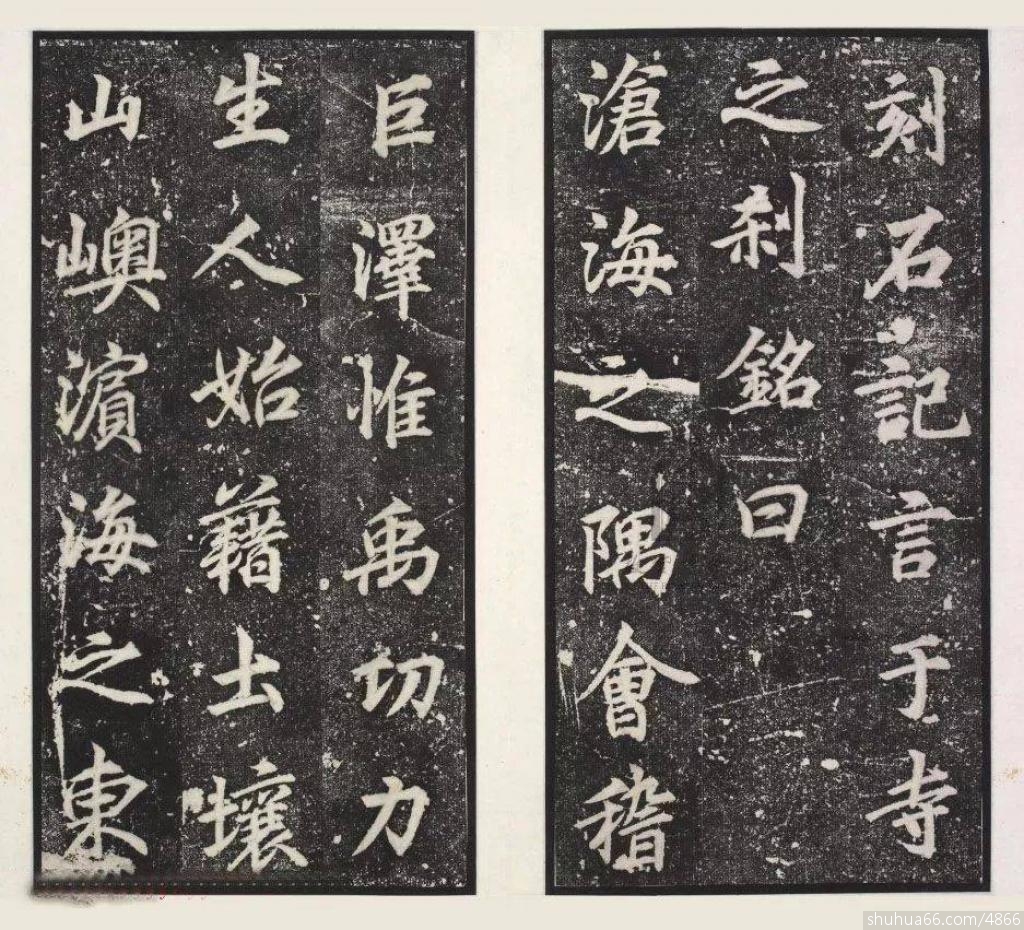 刻石記言于寺
之刹銘曰
滄海之隅會稽
巨澤惟禹切力
生人始藉土壤
山嶼濵海之東
shuhua66.com/4866